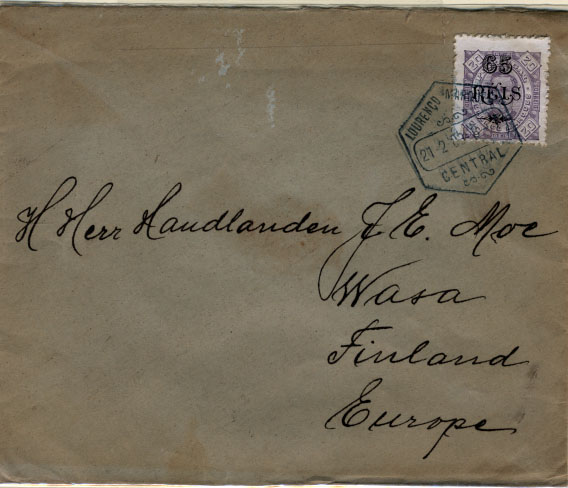 65
REIS
LOURENÇO
CENTRAL
H Herr Handlanden J. E. Moe
Wasa
Finland
Europe